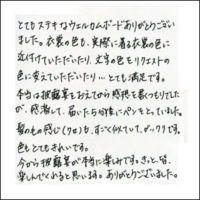 とてもステキなウェルカムボードありがとうござい
ました。衣装の色も、実際に着る衣装の色に
近付けていただいたり、文字の色をリクエストの
色に変えていただいたり…とても満足です。
本当は披露宴をおえてから感想を義つもりでした
が、感激して、届いたら勢いにペンをとっていました。
髪のもの感じ(クセ)も、すごく似ていて、ビックリです。
色もとてもきれいです。
今から披露宴が本当に楽しみです。きっと、皆、
楽しんでくれると思います。ありがとうございました。